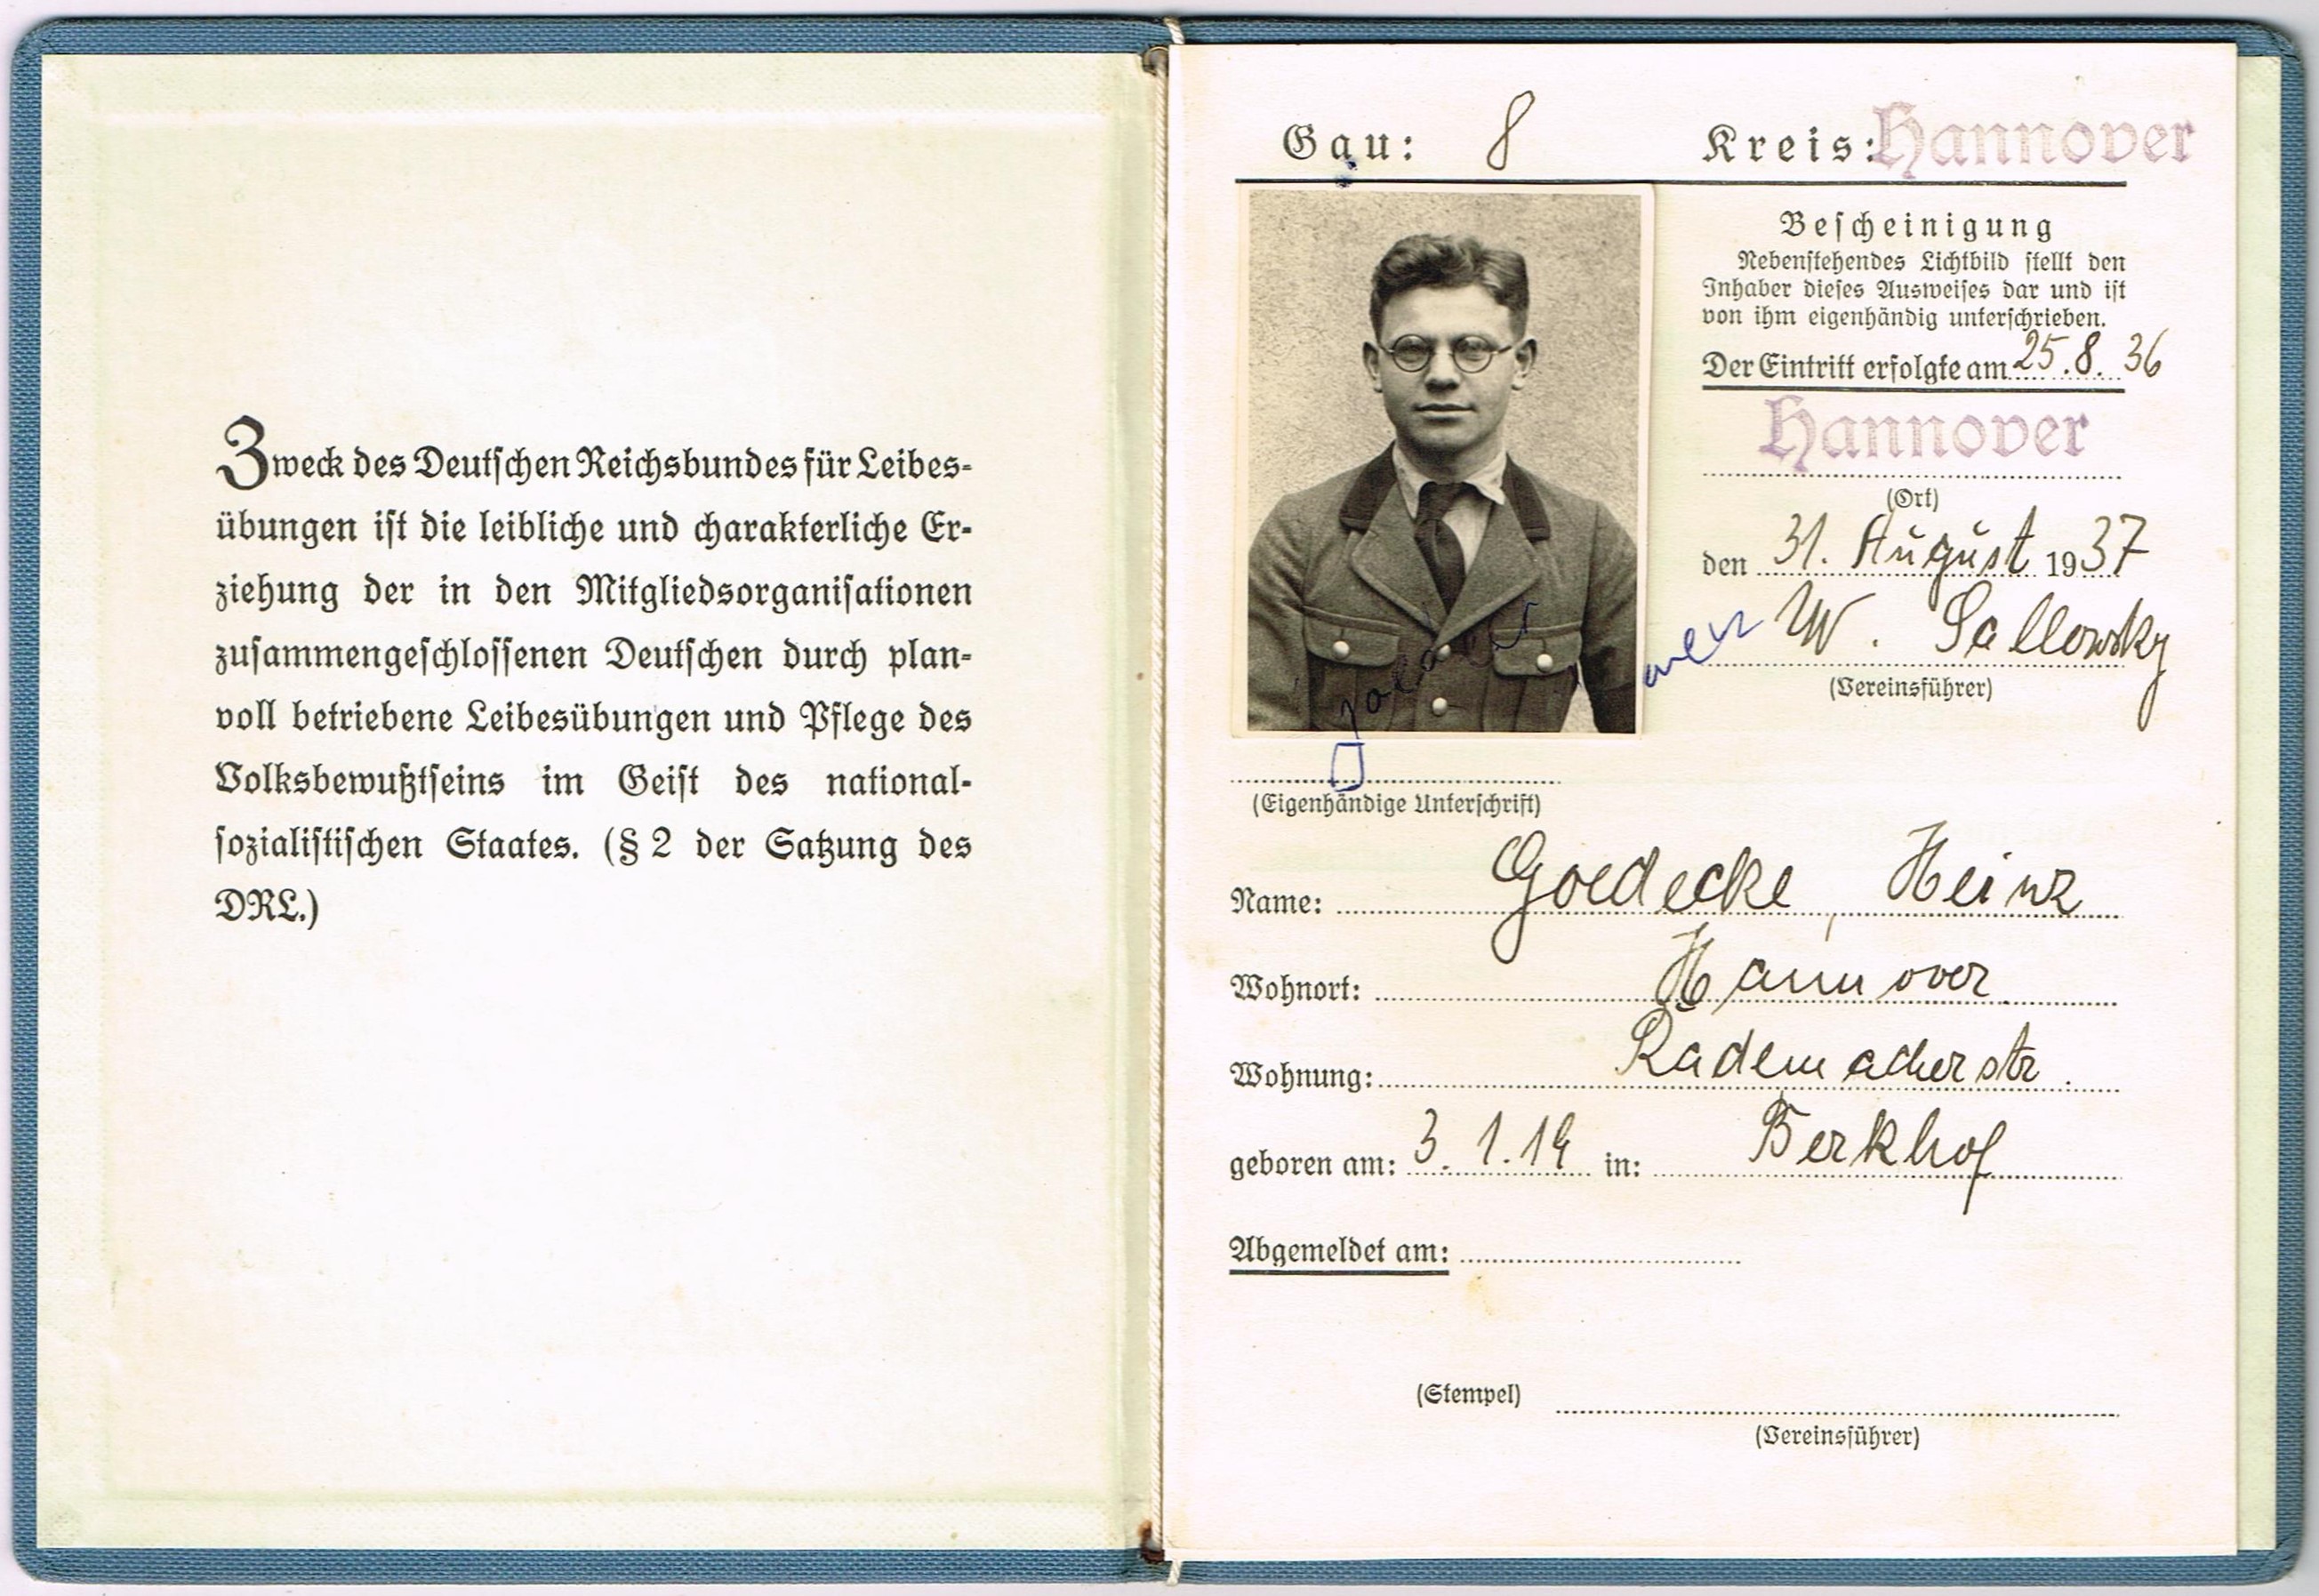 Zweck des Deutschen Reichsbundes für Leibes-
übungen ist die leibliche und charakterliche Er-
ziehung der in den Mitgliedsorganisationen
zusammengeschlossenen Deutschen durch plan-
voll betriebene Leibesübungen und Pflege des
Volksbewußtseins im Geist des national-
sozialistischen Staates. (§ 2 der Satzung des
DRL.)
Gau: 8 Kreis: Hannover
Bescheinigung
Nebenstehendes Lichtbild stellt den
Inhaber dieses Ausweises dar und ist
von ihm eigenhändig unterschrieben.
Der Eintritt erfolgte am 25.8.36
Hannover
(Ort)
den 31. August 1937
W. Sallowsky
(Vereinsführer)
(Eigenhändige Unterschrift)
Name: Goedecke, Heinz
Wohnort: Hannover
Wohnung: Rademacherstr.
geboren am: 3.1.19 in: Berkhof
Abgemeldet am:
(Stempel)
(Vereinsführer)